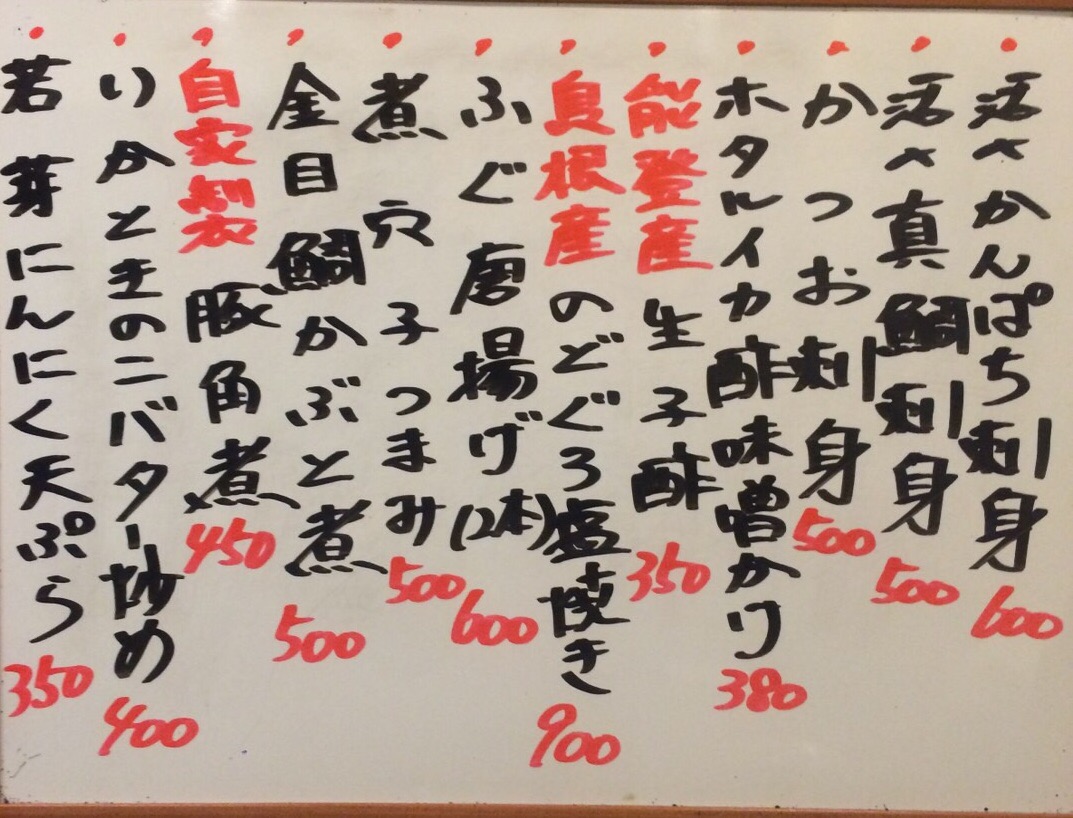 ・活〆かんぱち刺身 600
・活〆真鯛刺身 500
・かつお刺身 500
・ホタルイカ酢味噌かけ 380
・能登産生子酢 350
・島根産のどぐろ塩焼き 900
・ふぐ唐揚げ(2本) 600
・煮穴子つまみ 500
・金目鯛かぶと煮 500
・自家製豚角煮 450
・いかときのこバター炒め 400
・若芽にんにく天ぷら 350